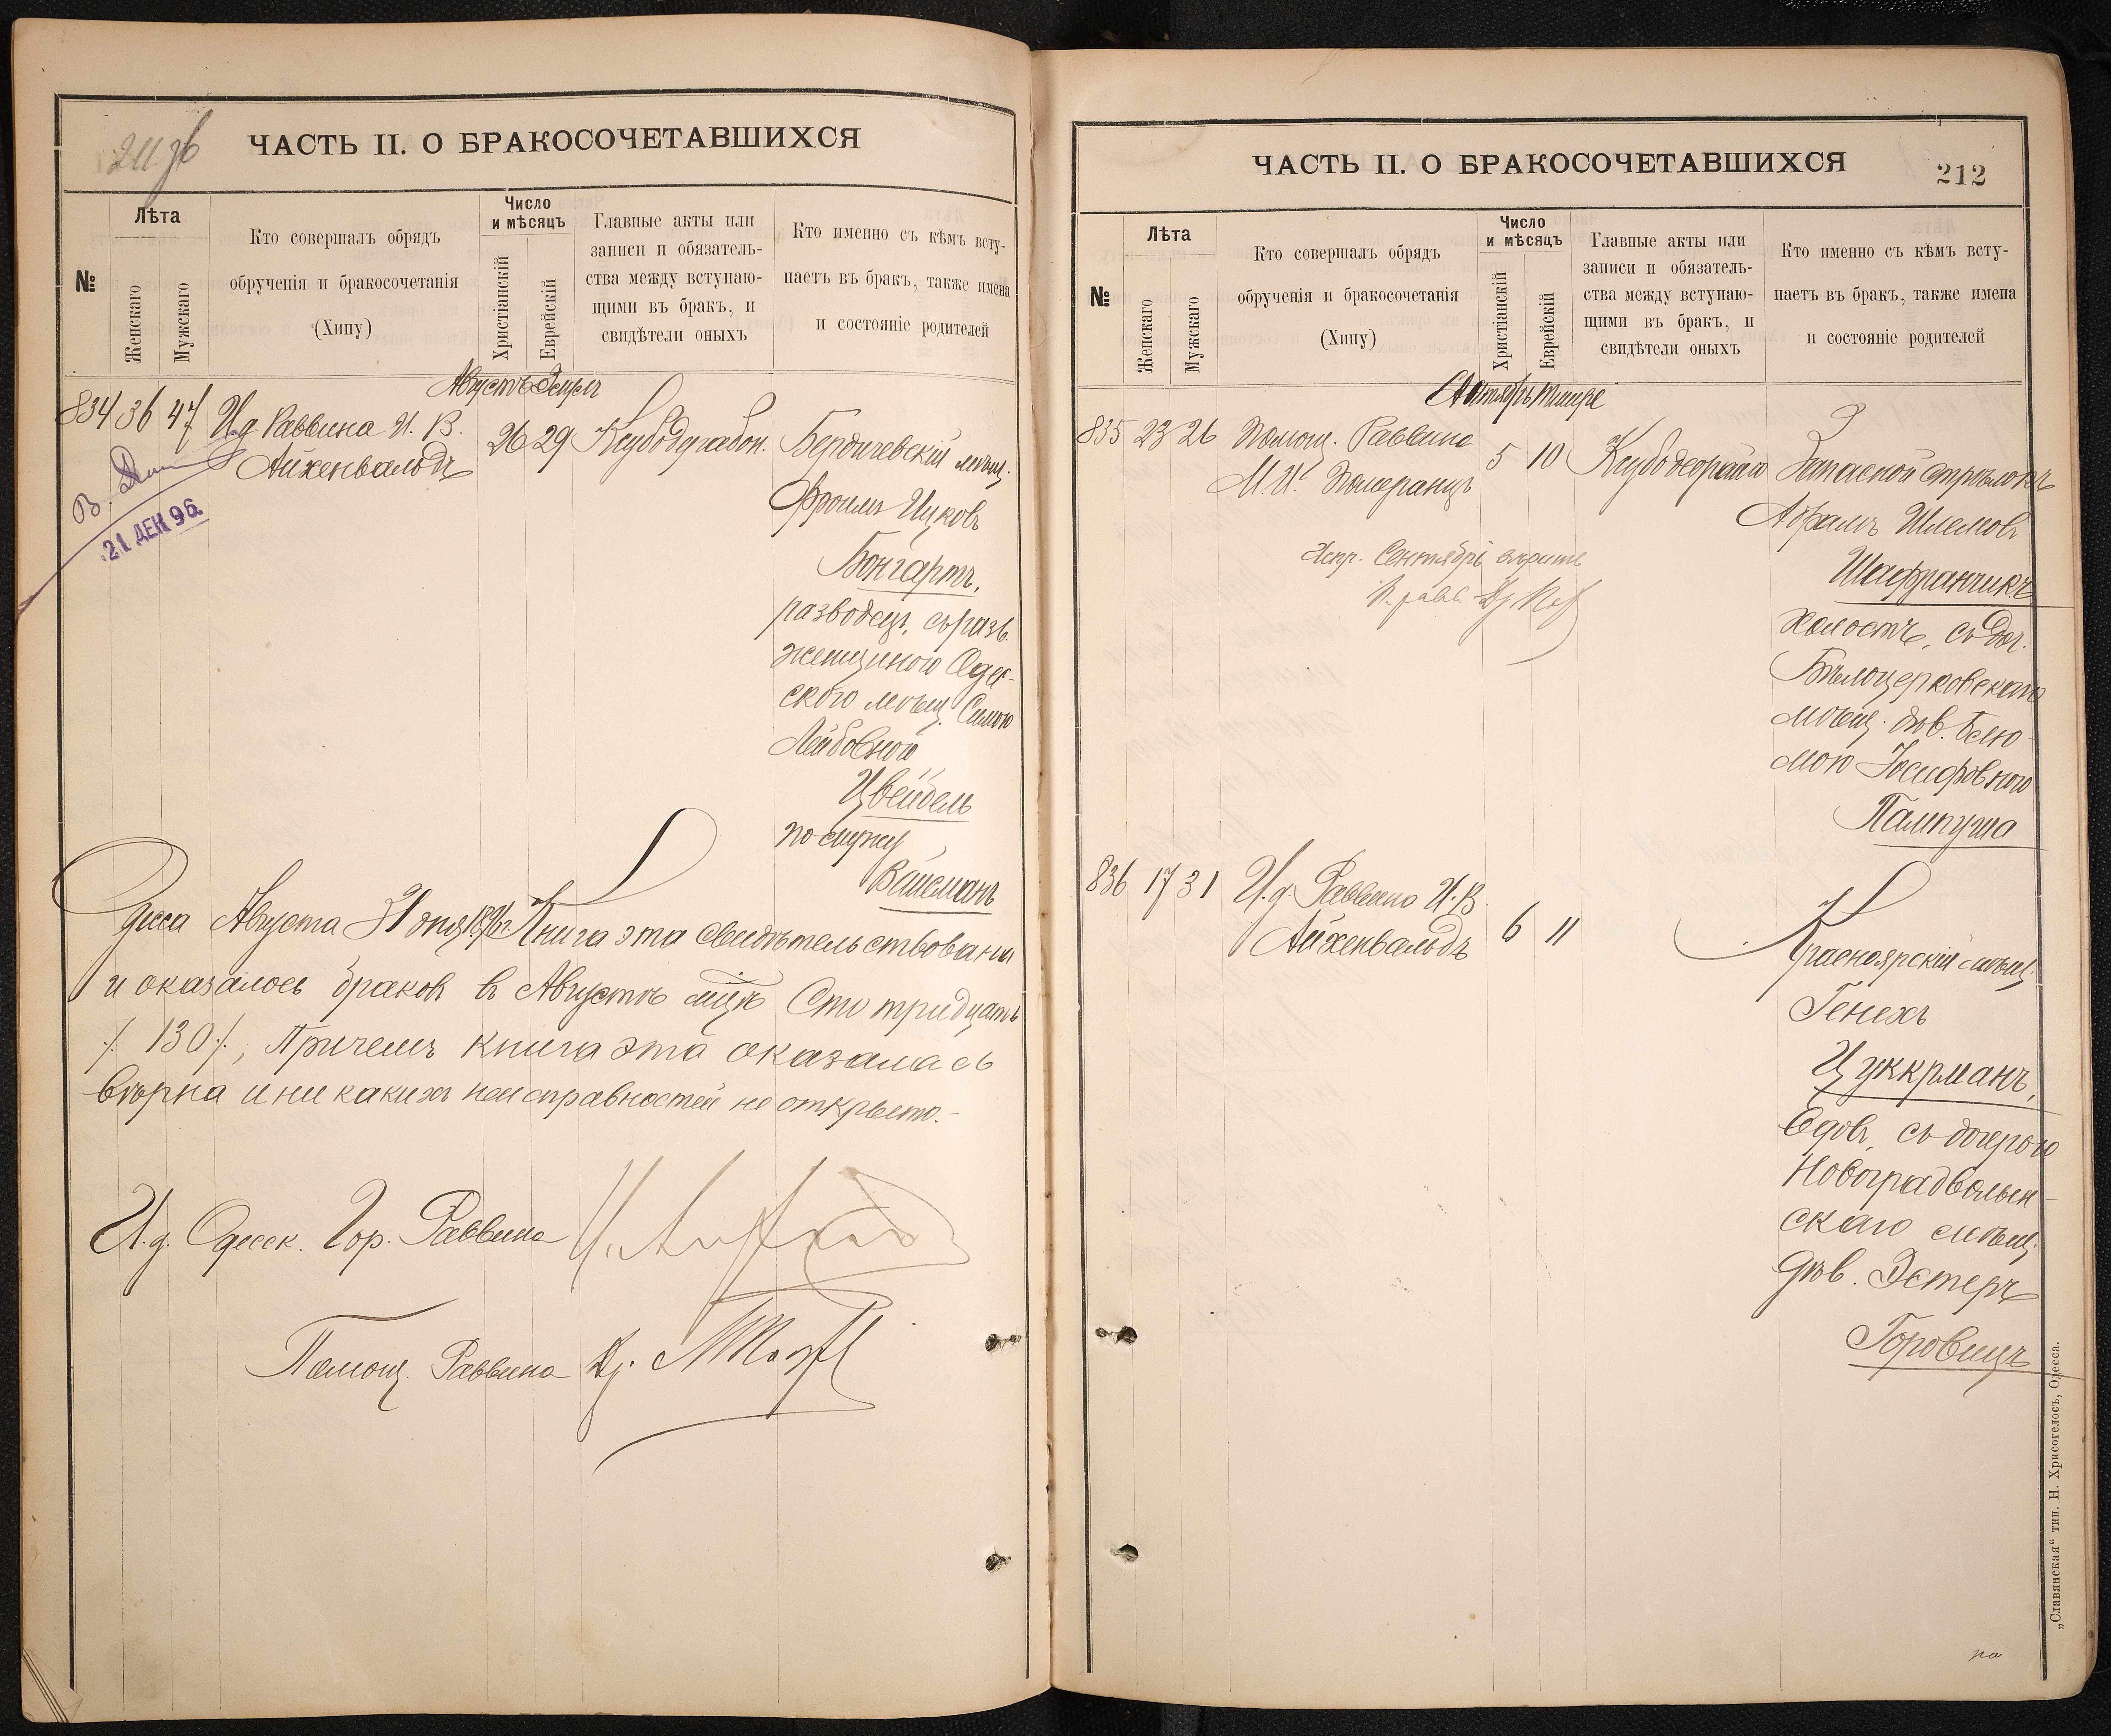 211 об
ЧАСТЬ II. О БРАКОСОЧЕТАВШИХСЯ
№
Лѣта
Женскаго
Мужскаго
Кто совершалъ обрядъ
обрученія и бракосочетанія
(Хипу)
Число
и мѣсяцъ
Христіанскій
Еврейскій
Главные акты или
записи и обязатель-
ства между вступаю-
щими въ бракъ, и
свидѣтели оныхъ
Кто именно съ кѣмъ всту-
паетъ въ бракъ, также имена
и состояніе родителей
Августъ
834 36 47 И.д. Раввина И. В.
Айхенвальдъ
26 29
Бердичевскій мѣщ.
Фроимъ Ицковъ
Бонгартъ,
разводецъ, съ разв.
женщиною Одес-
ского мѣщ. Симою
Лейбовной
Цвейбель
по мужу
Вайсманъ
В.
21 ДЕК 96
Одесса Августа 31 дня 1896 г. Книга эта свидѣтельствована
и оказалось браковъ в Августѣ мцѣ Сто тридцать
/. 130 /., Причемъ книга эта оказалась
вѣрна и никакихъ неисправностей не открыто.-
И.д. Одесск. Гор. Раввина
Помощ. Раввина Др.
ЧАСТЬ II. О БРАКОСОЧЕТАВШИХСЯ
212
№
Лѣта
Женскаго
Мужскаго
Кто совершалъ обрядъ
обрученія и бракосочетанія
(Хипу)
Число
и мѣсяцъ
Христіанскій
Еврейскій
Главные акты или
записи и обязатель-
ства между вступаю-
щими въ бракъ, и
свидѣтели оныхъ
Кто именно съ кѣмъ всту-
паетъ въ бракъ, также имена
и состояніе родителей
835 23 26 Помощ. Раввина
М. И. Померанцъ
5 10
Запасной стрѣлокъ
Абрамъ Шлемовъ
Шафранчикъ
холостъ, съ доч.
Бѣлоцерковскаго
мѣщ. дѣв. Бейю-
мою Іосифовною
Пампуша
Испр. Сентябрь вѣрить
836 17 31 И.д. Раввина И. В.
Айхенвальдъ
6 11
Красноярскій мѣщ.
Генехъ
Цуккрманъ,
вдов. съ дочерью
Новоградволын-
скаго мѣщ.
дѣв. Эстеръ
Горовицъ
„Славянская“ тип. Н. Хрисогелосъ, Одесса.